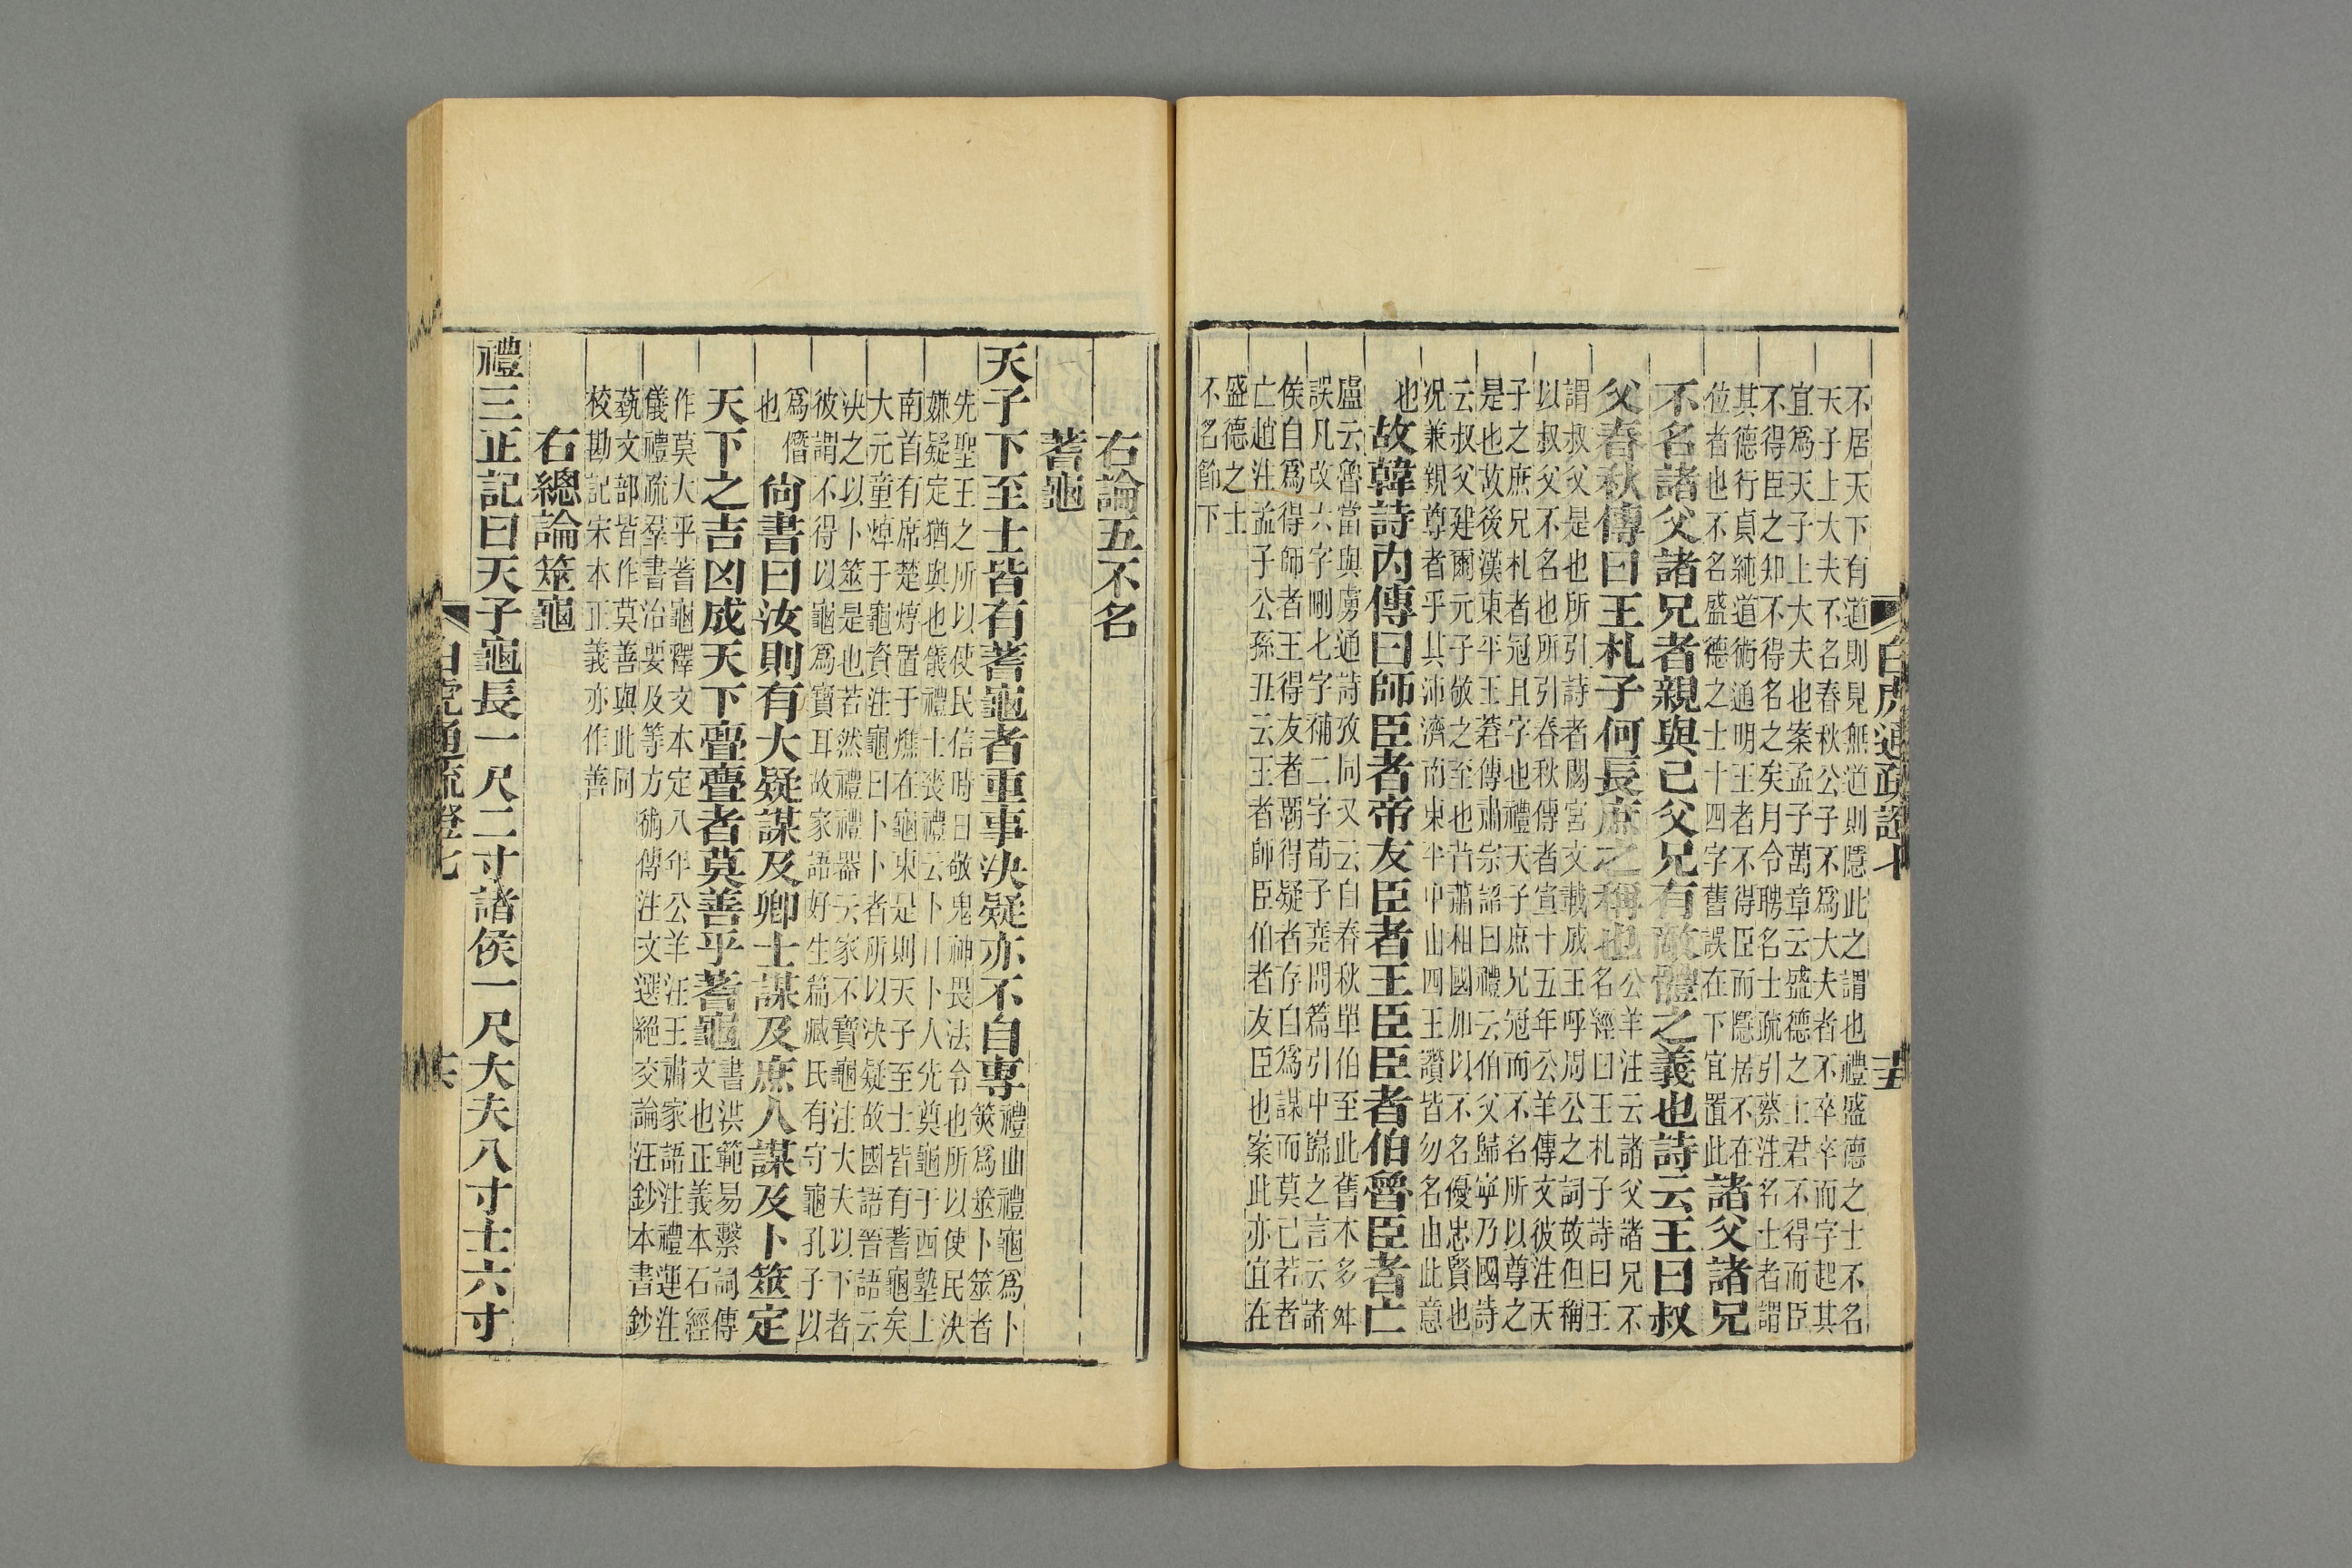 白虎通疏證七
十五
不居天下有道則見無道則隱此之謂也禮盛德之士不名
天子上大夫不名春秋公子不爲大夫者不卒卒而字起其
宜爲天子上大夫也案孟子萬章云盛德之士君不得而臣
不得臣之知不得名之矣月令聘名士疏引蔡注名士者謂
其德行貞純道術通明王者不得臣而隱居不在
位者也不名盛德之士十四字舊誤在下宜置此
諸父諸兄
不名諸父諸兄者親與已父兄有敵體之義也詩云王曰叔
父春秋傳曰王札子何長庶之稱也
公羊注云諸父諸兄不
名經曰王札子詩曰王
謂叔父是也所引詩者閟宮文載成王呼周公之詞故但稱
以叔父不名也所引春秋傳者宣十五年公羊傳文彼注天
子之庶兄札者冠且字也禮天子庶兄冠而不名所以尊之
是也故後漢東平王蒼傳肅宗詔曰禮云伯父歸寧乃國詩
云叔父建爾元子敬之至也昔蕭相國加以不名優忠賢也
況兼親尊者乎其沛濟南東平中山四王讚皆勿名由此意
也
故韓詩內傳曰師臣者帝友臣者王臣臣者伯魯臣者亡
盧云魯當與虜通詩攷同又云自春秋單伯至此舊本多舛
誤凡改六字刪七字補二字荀子堯問篇引中蘬之言云諸
侯自爲得師者王得友者霸得疑者存自爲謀而莫己若者
亡趙注孟子公孫丑云王者師臣伯者友臣也案此亦宜在
盛德之士
不名節下
右論五不名
蓍龜
天子下至士皆有蓍龜者重事決疑亦不自專
禮曲禮龜爲卜
筴爲筮卜筮者
先聖王之所以使民信時日敬鬼神畏法令也所以使民決
嫌疑定猶與也儀禮士喪禮云卜日卜人先奠龜于西塾上
南首有席楚焞置于燋在龜東是則天子至士皆有蓍龜矣
大元童焯于龜資注龜曰卜卜者所以決疑故國語晉語云
決之以卜筮是也若然禮禮器云家不寶龜注大夫以下者
彼謂不得以龜爲寶耳故家語好生篇臧氏有守龜孔子以
爲僭
也
尙書曰汝則有大疑謀及卿士謀及庶人謀及卜筮定
天下之吉凶成天下亹亹者莫善乎蓍龜
書洪範易繫詞傳
文也正義本石經
作莫大乎蓍龜釋文本定八年公羊注王肅家語注禮運注
儀禮疏羣書治要及等方術傳注文選絕交論注鈔本書鈔
藝文部皆作莫善與此同
校勘記宋本正義亦作善
右總論筮龜
禮三正記曰天子龜長一尺二寸諸侯一尺大夫八寸士六寸
白虎通疏證七